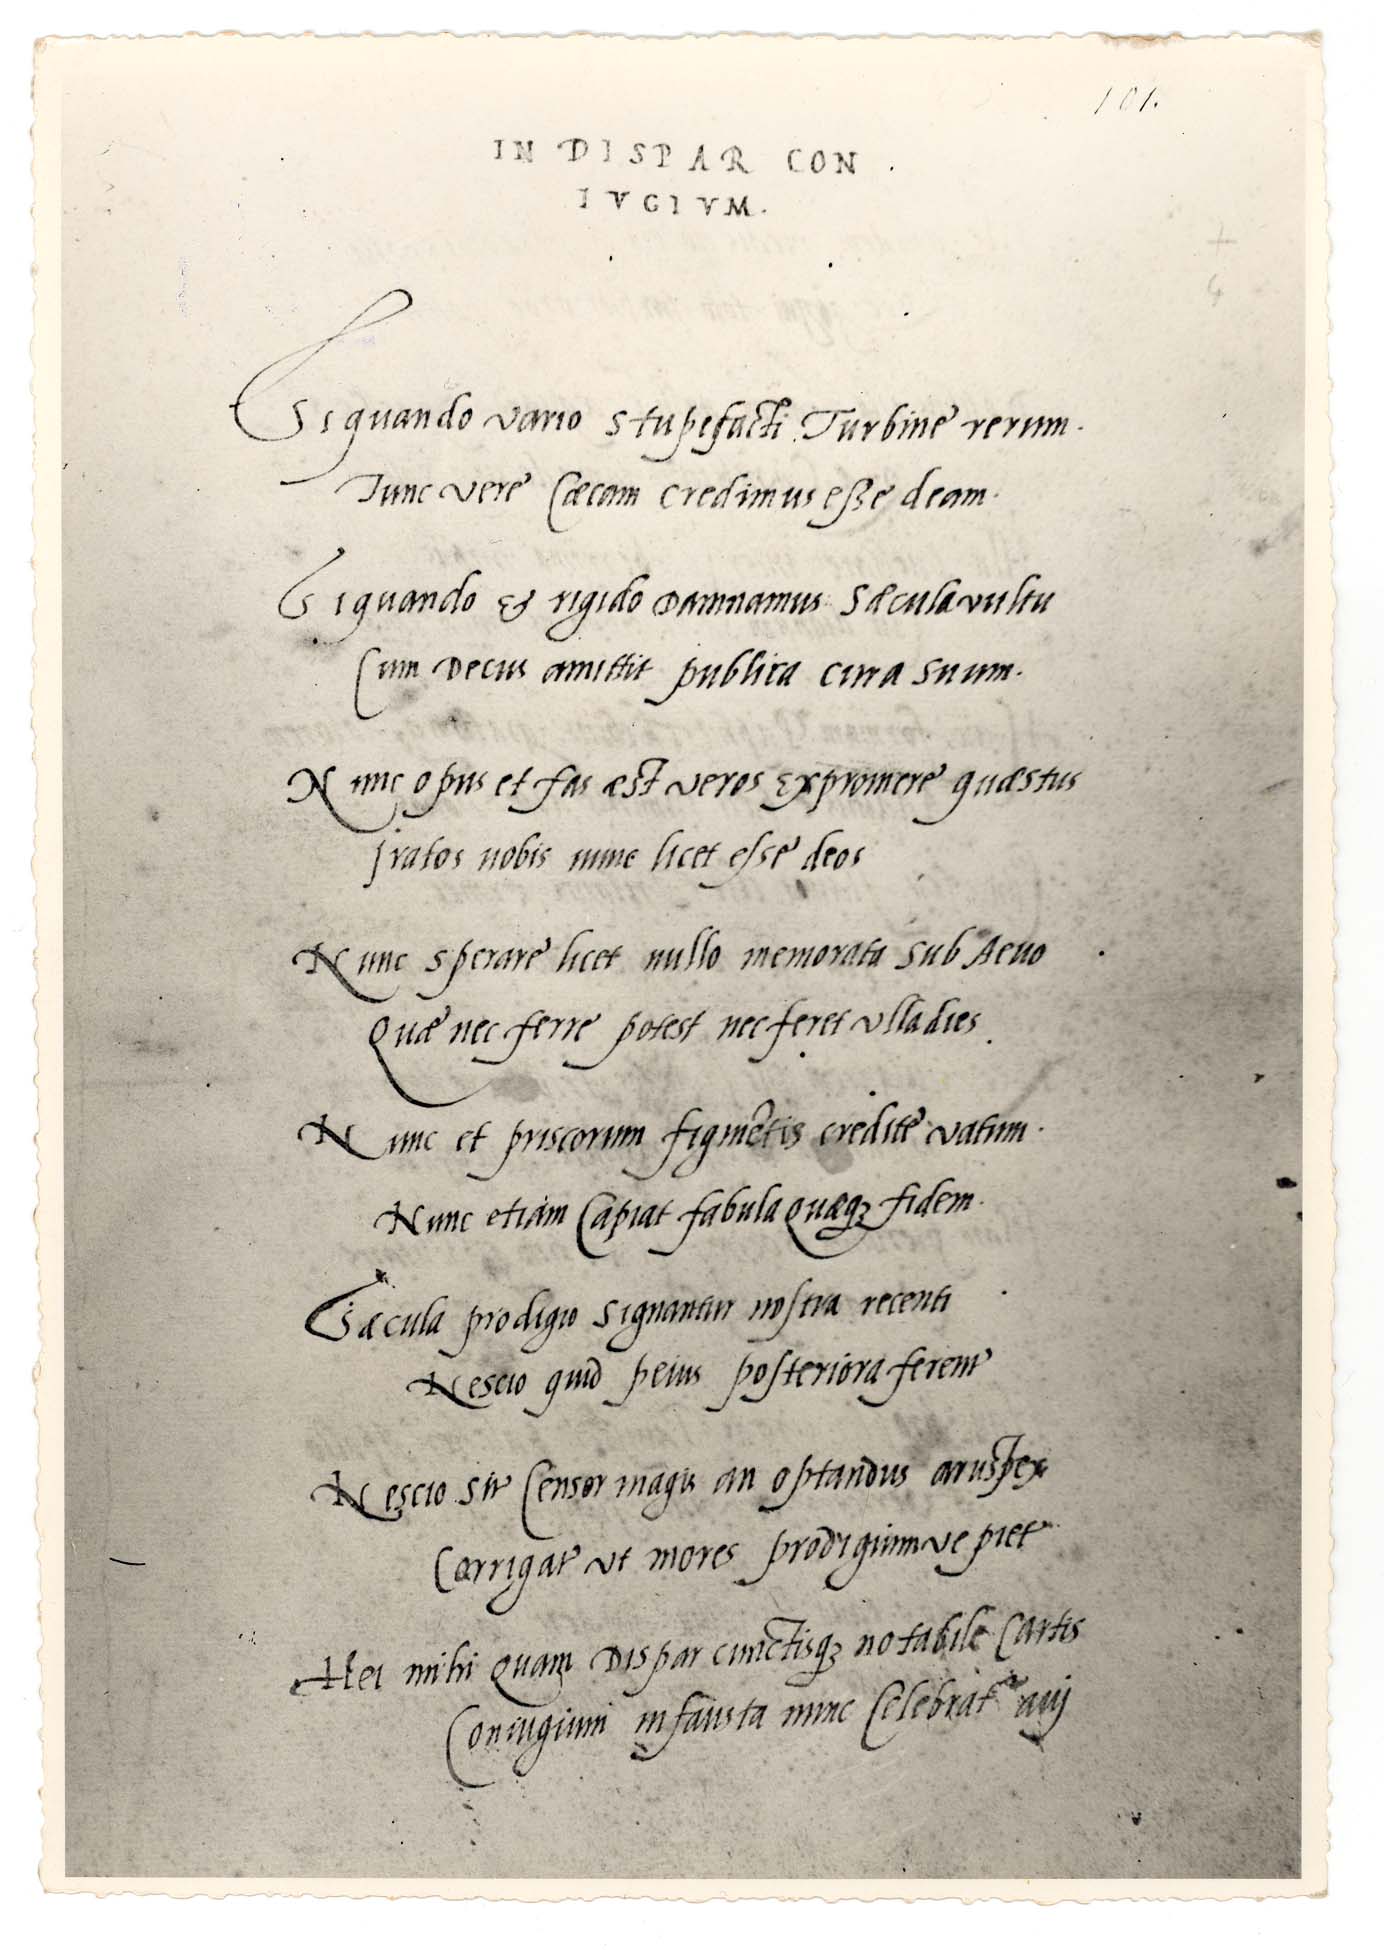 101.
IN DISPAR CON
IVGIVM.
+
4
Si quando vario stupefacti Turbine rerum.
Tunc vere Cæcam credimus esse deam.
Si quando & rigido Damnamus Sæcula vultu
Cum Decus amittit publica cura suum.
Nunc opus et fas æst veros Expromere quæstus
Iratos nobis nunc licet esse deos
Nunc sperare licet nullo memorata sub Aeuo
Quæ nec ferre potest nec feret vlla dies.
Nunc et priscorum figmētis credite vatum.
Nunc etiam Capiat fabula Quæqꝫ fidem.
Sæcula prodigio signantur nostra recenti
Nescio quid peius posteriora ferent
Nescio sit Censor magis an optandus aruspex
Corrigat vt mores prodigiumve piet
Hei mihi Quam Dispar cunctisqꝫ notabile Cartis
Coniugium infausta nunc Celebrat